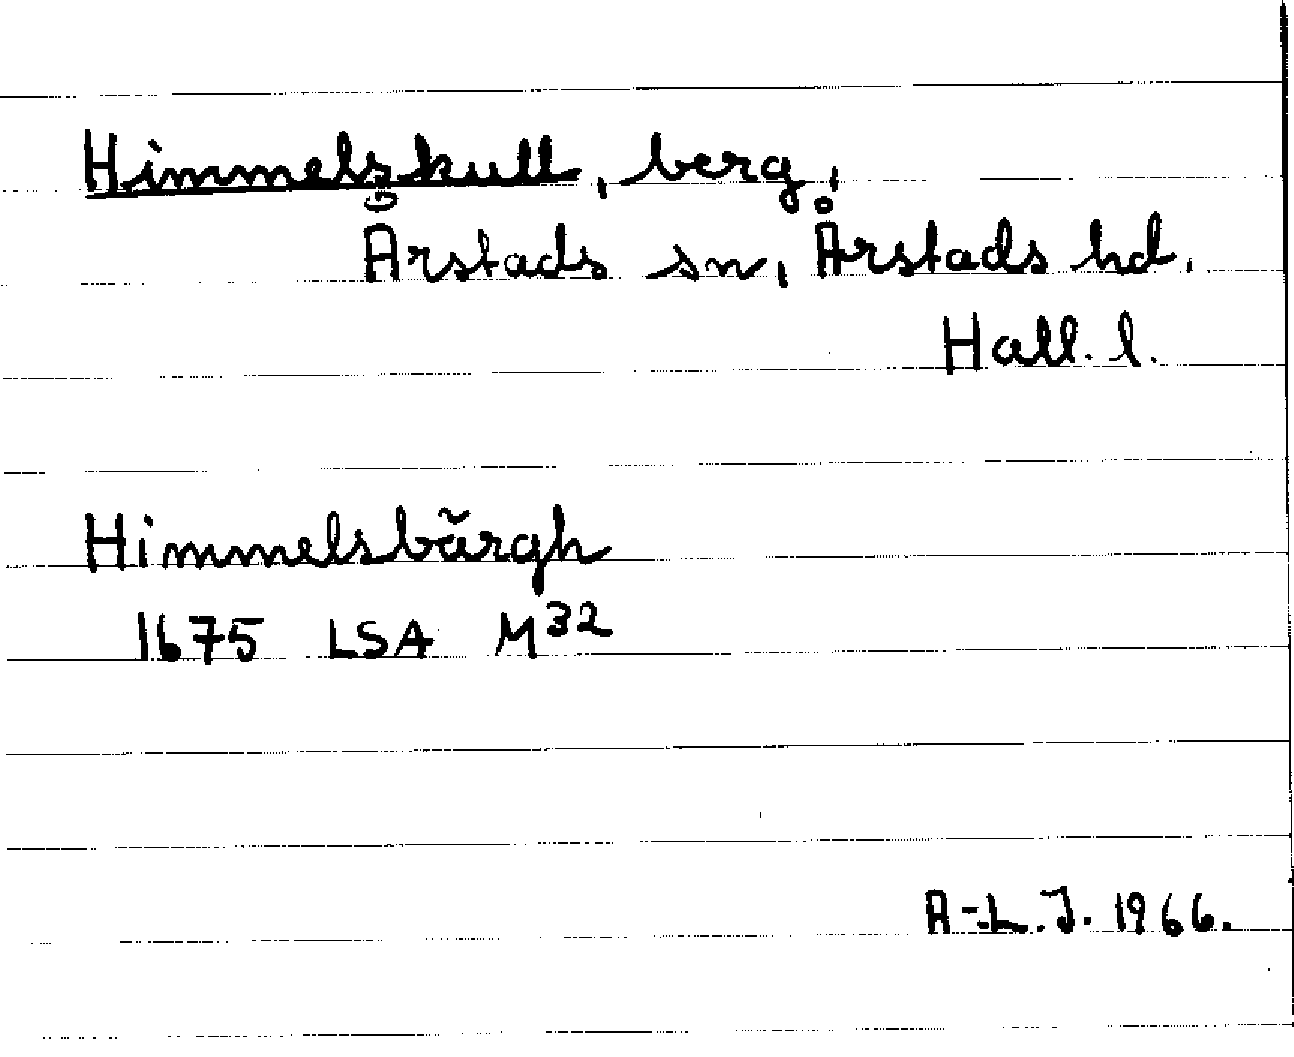 Himmelskull, berg,
Årstads sn, Årstads hd.
Hall. l.
Himmelsbärgh
1675 LSA M³²
A-L.J. 1966.